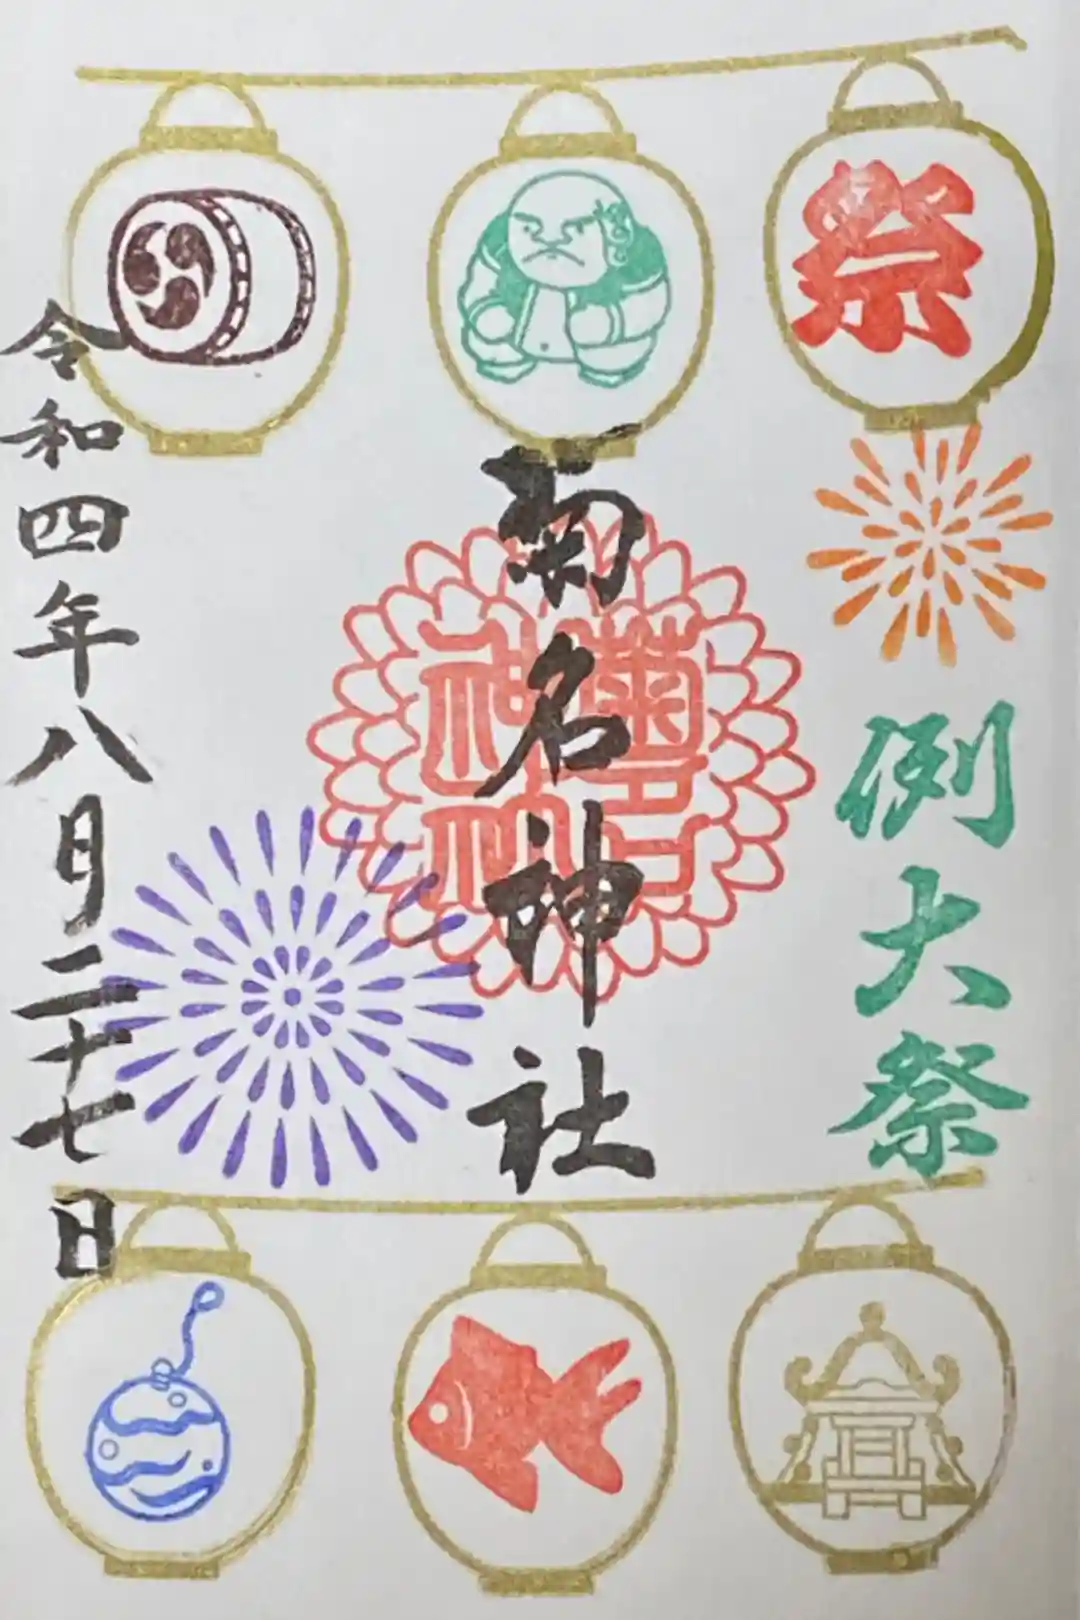 祭
例大祭
菊名神社
菊名神社
令和四年八月二十七日